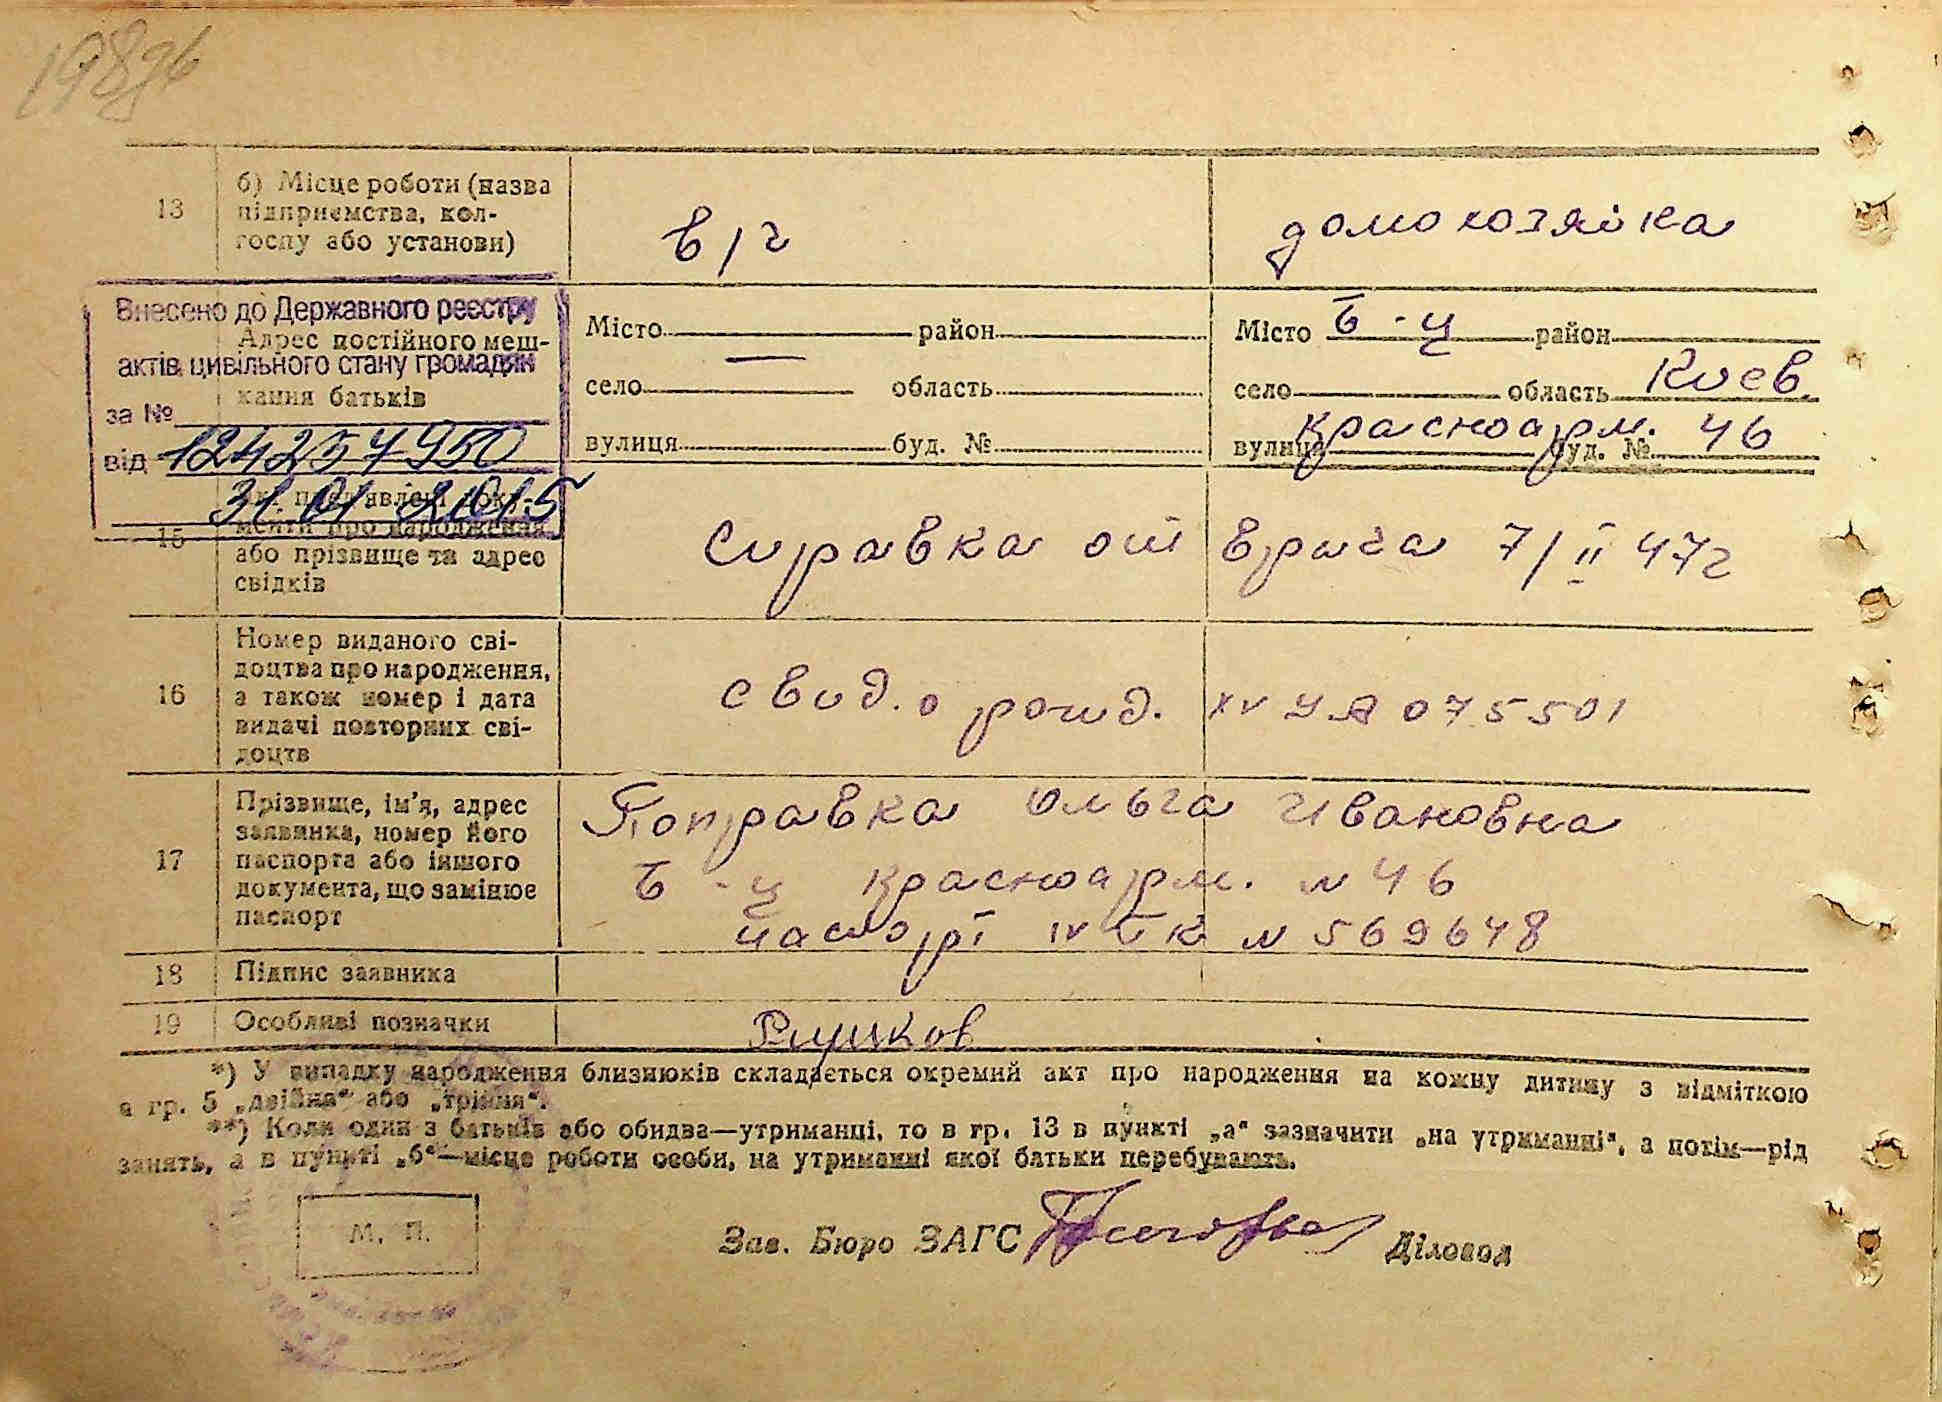 198
13
б) Місце роботи (назва
підприємства, кол-
госпу або установи)
в/г
домохозяйка
Внесено до Державного реєстру
актів цивільного стану громадян
за №
124257950
від
31.01 2015
Адрес постійного меш-
кання батьків
Місто район
село область
вулиця буд. №
Місто Б-ц район
село область Киев.
вулиця Красноарм. буд. № 46
15
менти про народження
або прізвище та адрес
свідків
Справка от врача 7/II 47г
16
Номер виданого сві-
доцтва про народження,
а також номер і дата
видачі повторних сві-
доцтв
свид. о рожд. XV УЯ 075501
17
Прізвище, ім'я, адрес
заявника, номер його
паспорта або іншого
документа, що замінює
паспорт
Поправка Ольга Ивановна
Б-ц Красноарм. N 46
паспорт IV БК N 569648
18
Підпис заявника
19
Особливі позначки
*) У випадку народження близнюків складається окремий акт про народження на кожну дитину з відміткою
в гр. 5 „двійня“ або „трійня“.
**) Коли один з батьків або обидва—утриманці, то в гр. 13 в пункті „а“ зазначити „на утриманні“, а потім—рід
занять, а в пункті „б“—місце роботи особи, на утриманні якої батьки перебувають.
М. П.
Зав. Бюро ЗАГС
Діловод